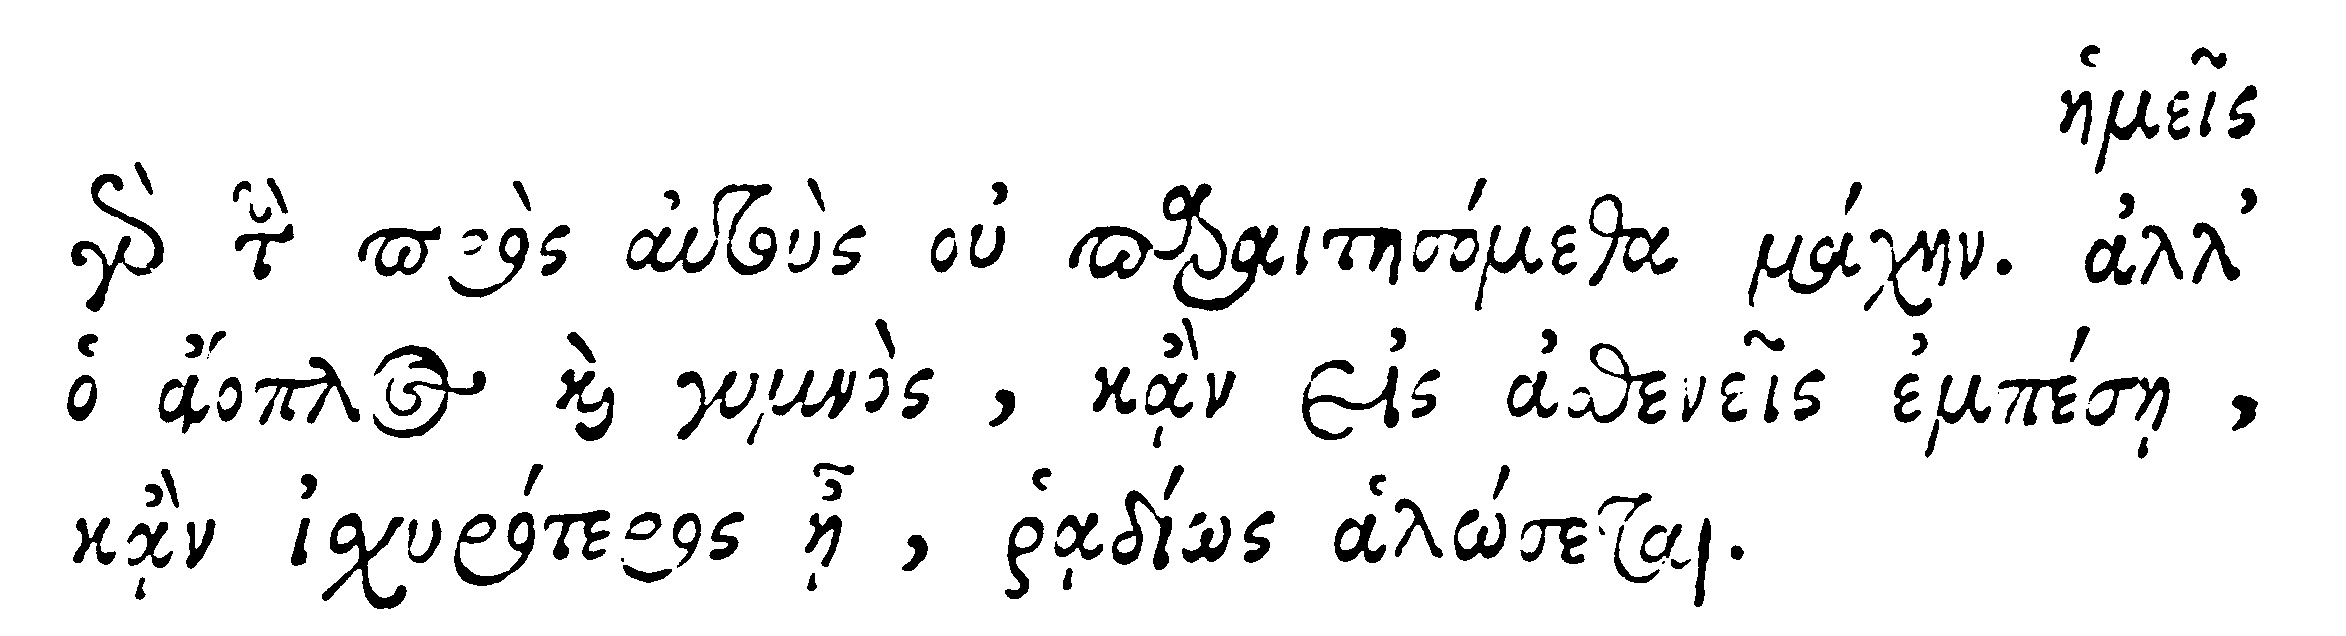 ἡμεῖς
γὰρ τὴν πρὸς αὐτοὺς οὐ παραιτησόμεθα μάχην. ἀλλ’
ὁ ἄοπλος καὶ γυμνὸς, κᾂν εἰς ἀσθενεῖς ἐμπέσῃ,
κᾂν ἰσχυρότερος ᾖ, ῥᾳδίως ἁλώσεται.